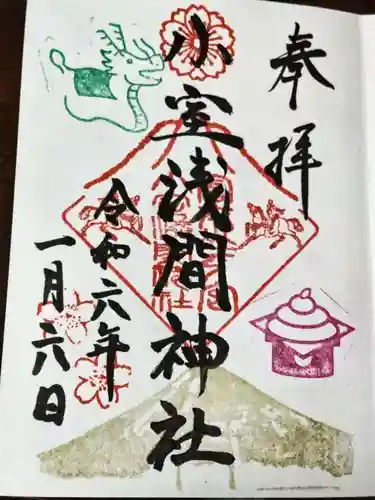 奉拝
小室浅間神社
令和六年
一月六日